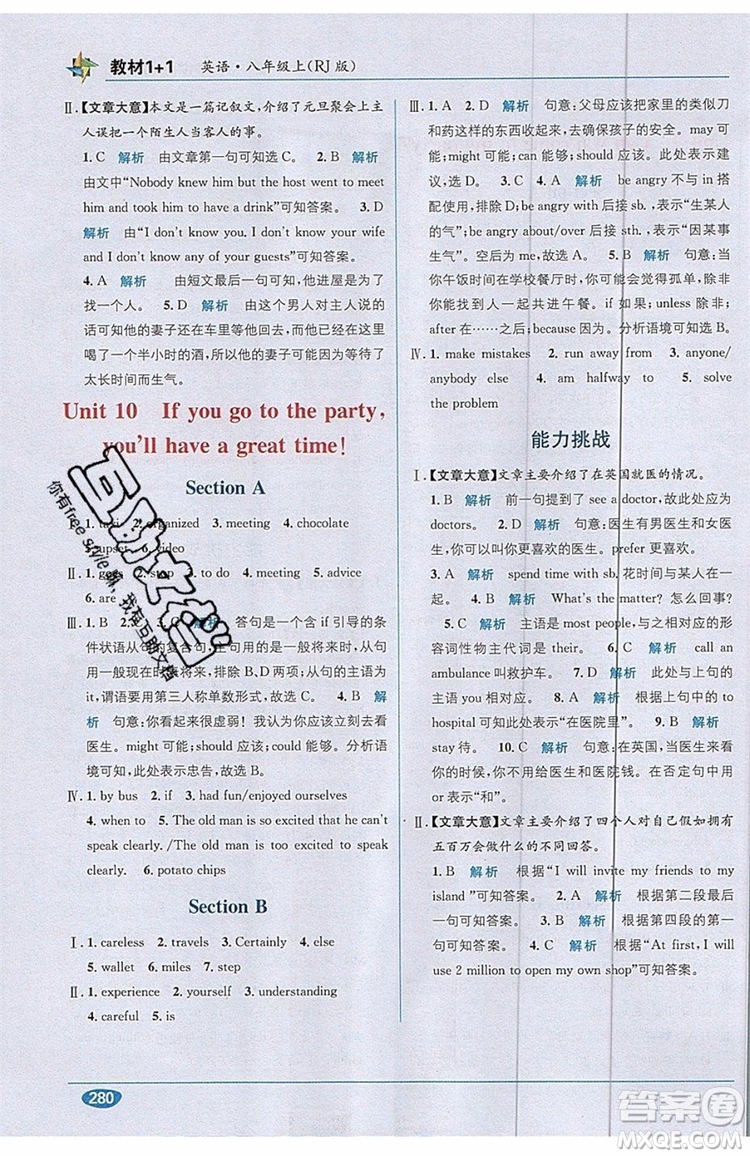 教材1+1 英语·八年级上(RJ版)
Ⅱ.【文章大意】本文是一篇记叙文,介绍了元旦聚会上主
人误把一个陌生人当客人的事。
1. C 解析 由文章第一句可知选C。 2. B 解析
由文中“Nobody knew him but the host went to meet
him and took him to have a drink”可知答案。 3. D
解析 由“I don't know you. I don't know your wife
and I don't know any of your guests”可知答案。
4. A 解析 由短文最后一句可知,他是在等他的
客人。 5. D 解析 由这个男人对主人说的
话可知他的妻子还在车里等他回去,而他却在这里
喝了一个半小时的酒,所以他的妻子可能因为等了
太长时间而生气。
Unit 10 If you go to the party,
you'll have a great time!
Section A
Ⅰ. 1. taxi 2. organized 3. meeting 4. chocolate
5. upset 6. video
Ⅱ. 1. gets 2. stop 3. to do 4. meeting 5. advice
6. are
Ⅲ. 1. B 2. D 3. C 解析 答句是一个含 if 引导的条
件状语从句的复合句,主句用一般将来时,从句
用一般现在时,排除B、D两项;从句的主语为
it,谓语要用第三人称单数形式,故选C。 4. B 解
析 句意:你看起来很虚弱!我认为你应该立刻去看
医生。might 可能;should 应该;could 能够。分析语
境可知,此处表示忠告,故选B。
Ⅳ. 1. by bus 2. if 3. had fun/enjoyed ourselves
4. when to 5. The old man is so excited that he can't
speak clearly. /The old man is too excited to speak
clearly. 6. potato chips
Section B
Ⅰ. 1. careless 2. travels 3. Certainly 4. else
5. wallet 6. miles 7. step
Ⅱ. 1. experience 2. yourself 3. understanding
4. careful 5. is
Ⅲ. 1. A 2. D 解析 句意:父母应该把家里的类似刀
和药这样的东西收起来,去确保孩子的安全。may 可
能;might 可能;can 能够;should 应该。此处表示建
议,选D。 3. C 4. A 解析 be angry 从不与 in 搭
配使用,排除D;be angry with 后接 sb. ,表示“生某人
的气”;be angry about/over 后接 sth. ,表示“因某事
生气”。空后是me,故选A。 5. B 解析 句意:当
你午饭时间在学校餐厅时,你可能会觉得孤单,除非
你能和别人一起共进午餐。if 如果;unless 除非;
after 在……之后;because 因为。分析语境可知选B。
Ⅳ. 1. make mistakes 2. run away from 3. anyone/
anybody else 4. am halfway to 5. solve
the problem
能力挑战
Ⅰ.【文章大意】文章主要介绍了在英国就医的情况。
1. B 解析 前一句中提到了 see a doctor,此处应为
doctors。 2. B 解析 句意:医生有男医生和女医
生,所以你可以叫你更喜欢的医生。prefer 更喜欢。
3. A 解析 spend time with sb. 花时间与某人在一
起。 4. B 解析 What's the matter? 怎么回事?
5. C 6. D 解析 主语是 most people,所以对应的形
容词性物主代词是 their。 7. C 解析 call an
ambulance 叫救护车。 8. A 解析 此处与上句的
主语 you 相对应。 9. A 解析 根据上句中的 to
hospital 可知此处表示“在医院里”。
stay 待。 10. C 解析 句意:在英国,当你去看医
生的时候,你不用给医生和医院钱。此处在否定句中用
or 表示“和”。
Ⅱ.【文章大意】文章主要介绍了四个人对自己假如拥有
五百万会做什么的不同回答。
1. B 解析 根据“I will invite my friends to my
island”可知答案。 2. A 解析 根据第二段最后
一句可知答案。 3. D 解析 根据第四段的第一
句可知答案。 4. B 解析 根据“At first, I will
use 2 million to open my own shop”可知答案。
280
互助文档
你有free style嘛,我有互助文档
答案圈
MXQE.COM